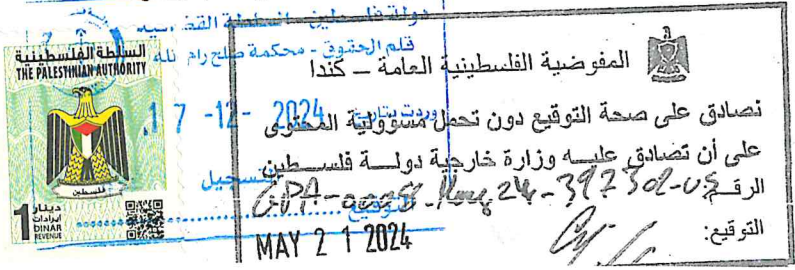 دولة فلسطين - السلطة القضائية
قلم الحقوق - محكمة صلح رام الله
وردت بتاريخ 17 -12- 2024
التوقيع
السلطة الفلسطينية
THE PALESTINIAN AUTHORITY
فلسطين
1 دينار
ايرادات
DINAR
REVENUE
المفوضية الفلسطينية العامة – كندا
نصادق على صحة التوقيع دون تحمل مسؤولية المحتوى
على أن تصادق عليه وزارة خارجية دولة فلسطين
الرقم:
التوقيع:
MAY 2 1 2024